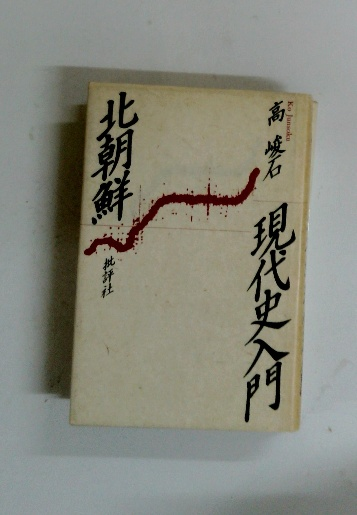 Ko Junsoku
高 峻石
北朝鮮
現代史入門
批評社